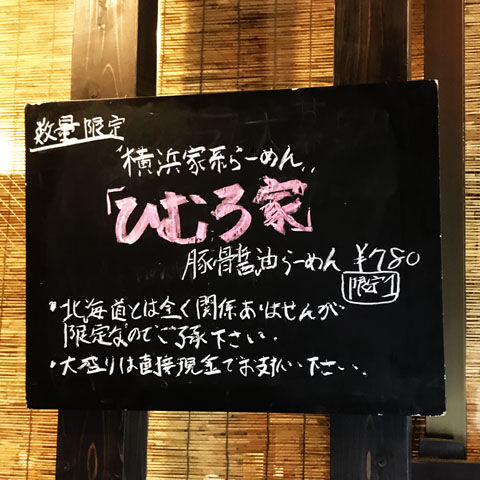 数量限定
"横浜家系らーめん"
「ひむろ家」
豚骨醤油らーめん ¥780
限定1
・北海道とは全く関係ありませんが
"限定"なのでご了承下さい。
・大盛りは直接現金でお支払い下さい。